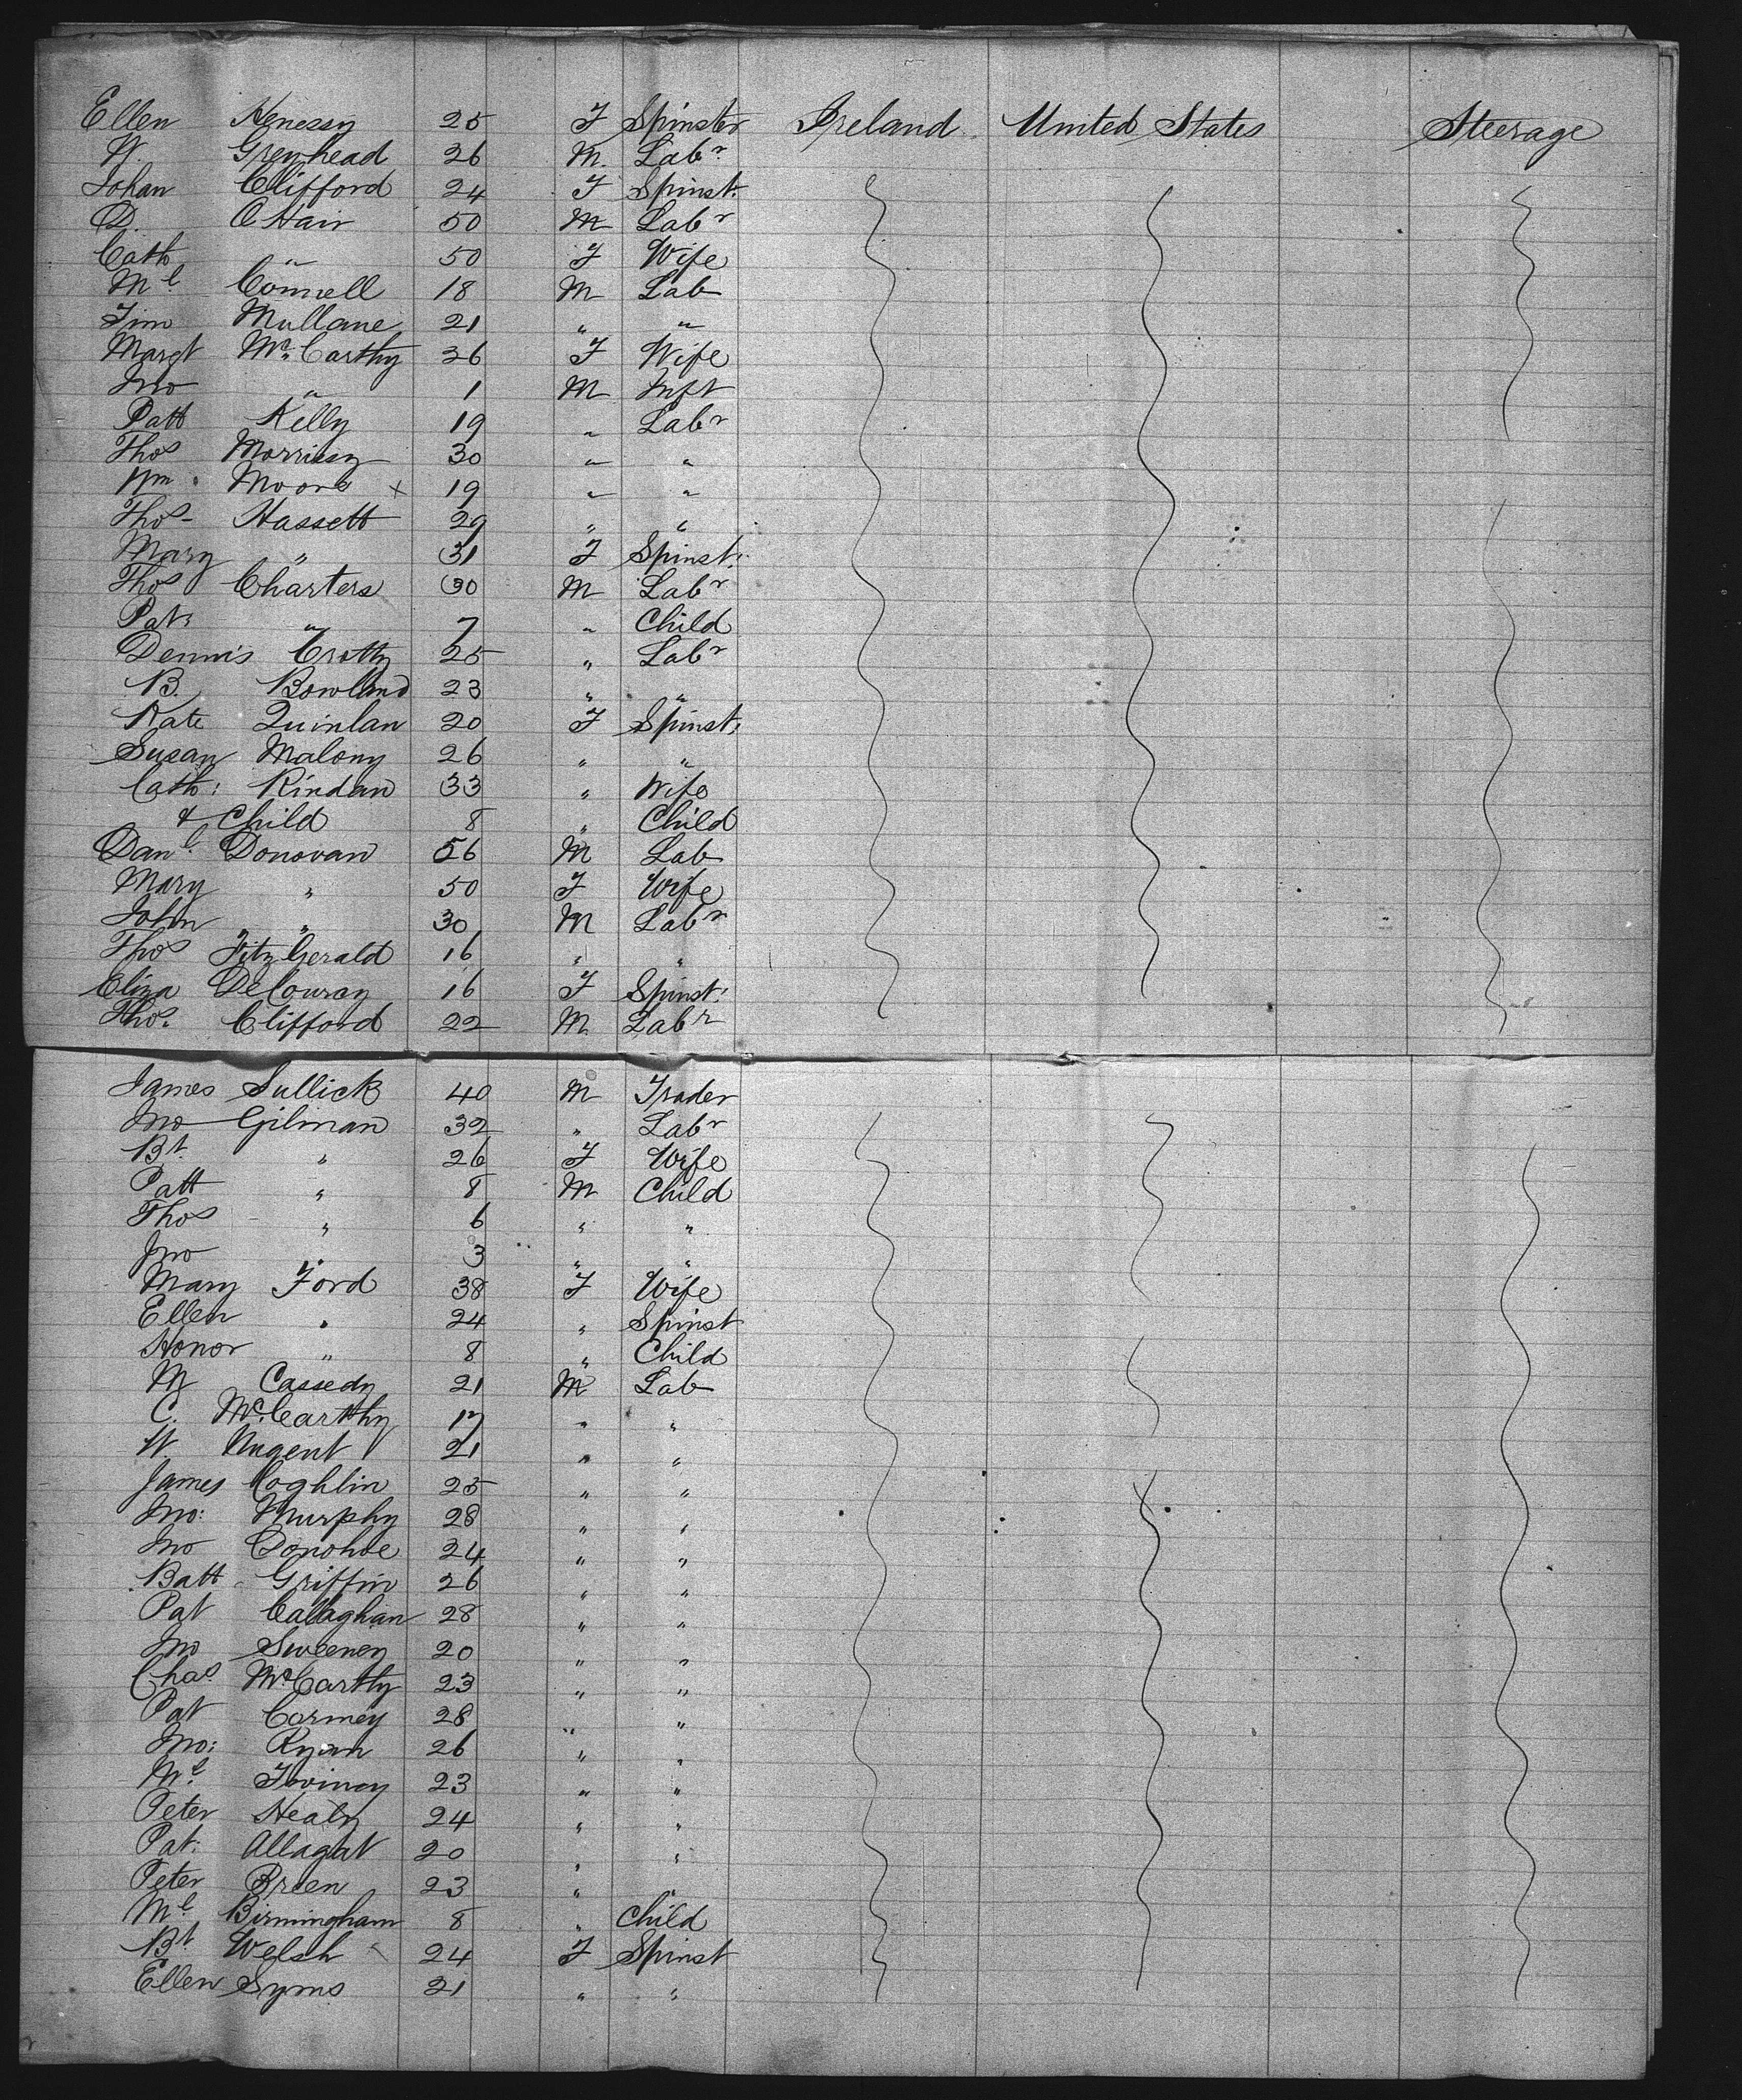 Ellen Henessy 25 F Spinster Ireland United States Steerage
W. Greyhead 26 M. Labr
Johan Clifford 24 F Spinst.
D. O Hair 50 M Labr
Cath " 50 F Wife
Ml Connell 18 M Lab
Tim Mullane 21 " "
Margt McCarthy 36 F Wife
Jno " 1 M Inft
Patt Kelly 19 " Labr
Thos Morrissy 30 " "
Wm. Moore x 19 " "
Thos- Hassett 29 " "
Mary " 31 F Spinst.
Thos Charters 30 M Labr
Pat: " 7 " Child
Dennis Crotty 25 " Labr
B. Bowland 23 " "
Kate Quinlan 20 F Spinst.
Susan Malony 26 " "
Cath: Rindan 33 " Wife
& Child 8 " Child
Danl. Donovan 56 M Lab
Mary " 50 F Wife
John " 30 M Labr
Thos FitzGerald 16 " "
Eliza DeCouray 16 F Spinst.
Thos. Clifford 22 M Labr
James Sullick 40 M Trader
Jno Gilman 32 " Labr
Bt. " 26 F Wife
Patt " 8 M Child
Thos " 6 " "
Jno " 3 " "
Mary Ford 38 F Wife
Ellen " 24 " Spinst
Honor " 8 " Child
M Cassedy 21 M Lab
C. McCarthy 17 " "
W. Nugent 21 " "
James Coghlin 25 " "
Jno: Murphy 28 " "
Jno Donohoe 24 " "
Batt Griffin 26 " "
Pat Callaghan 28 " "
Jno Sweeney 20 " "
Chas. McCarthy 23 " "
Pat Cormey 28 " "
Jno: Ryan 26 " "
Ml 23 " "
Peter Healy 24 " "
Pat: Allagat 20 " "
Peter Breen 23 " "
Ml Birmingham 8 " Child
Bt Welsh 24 F Spinst
Ellen Syms 21 " "